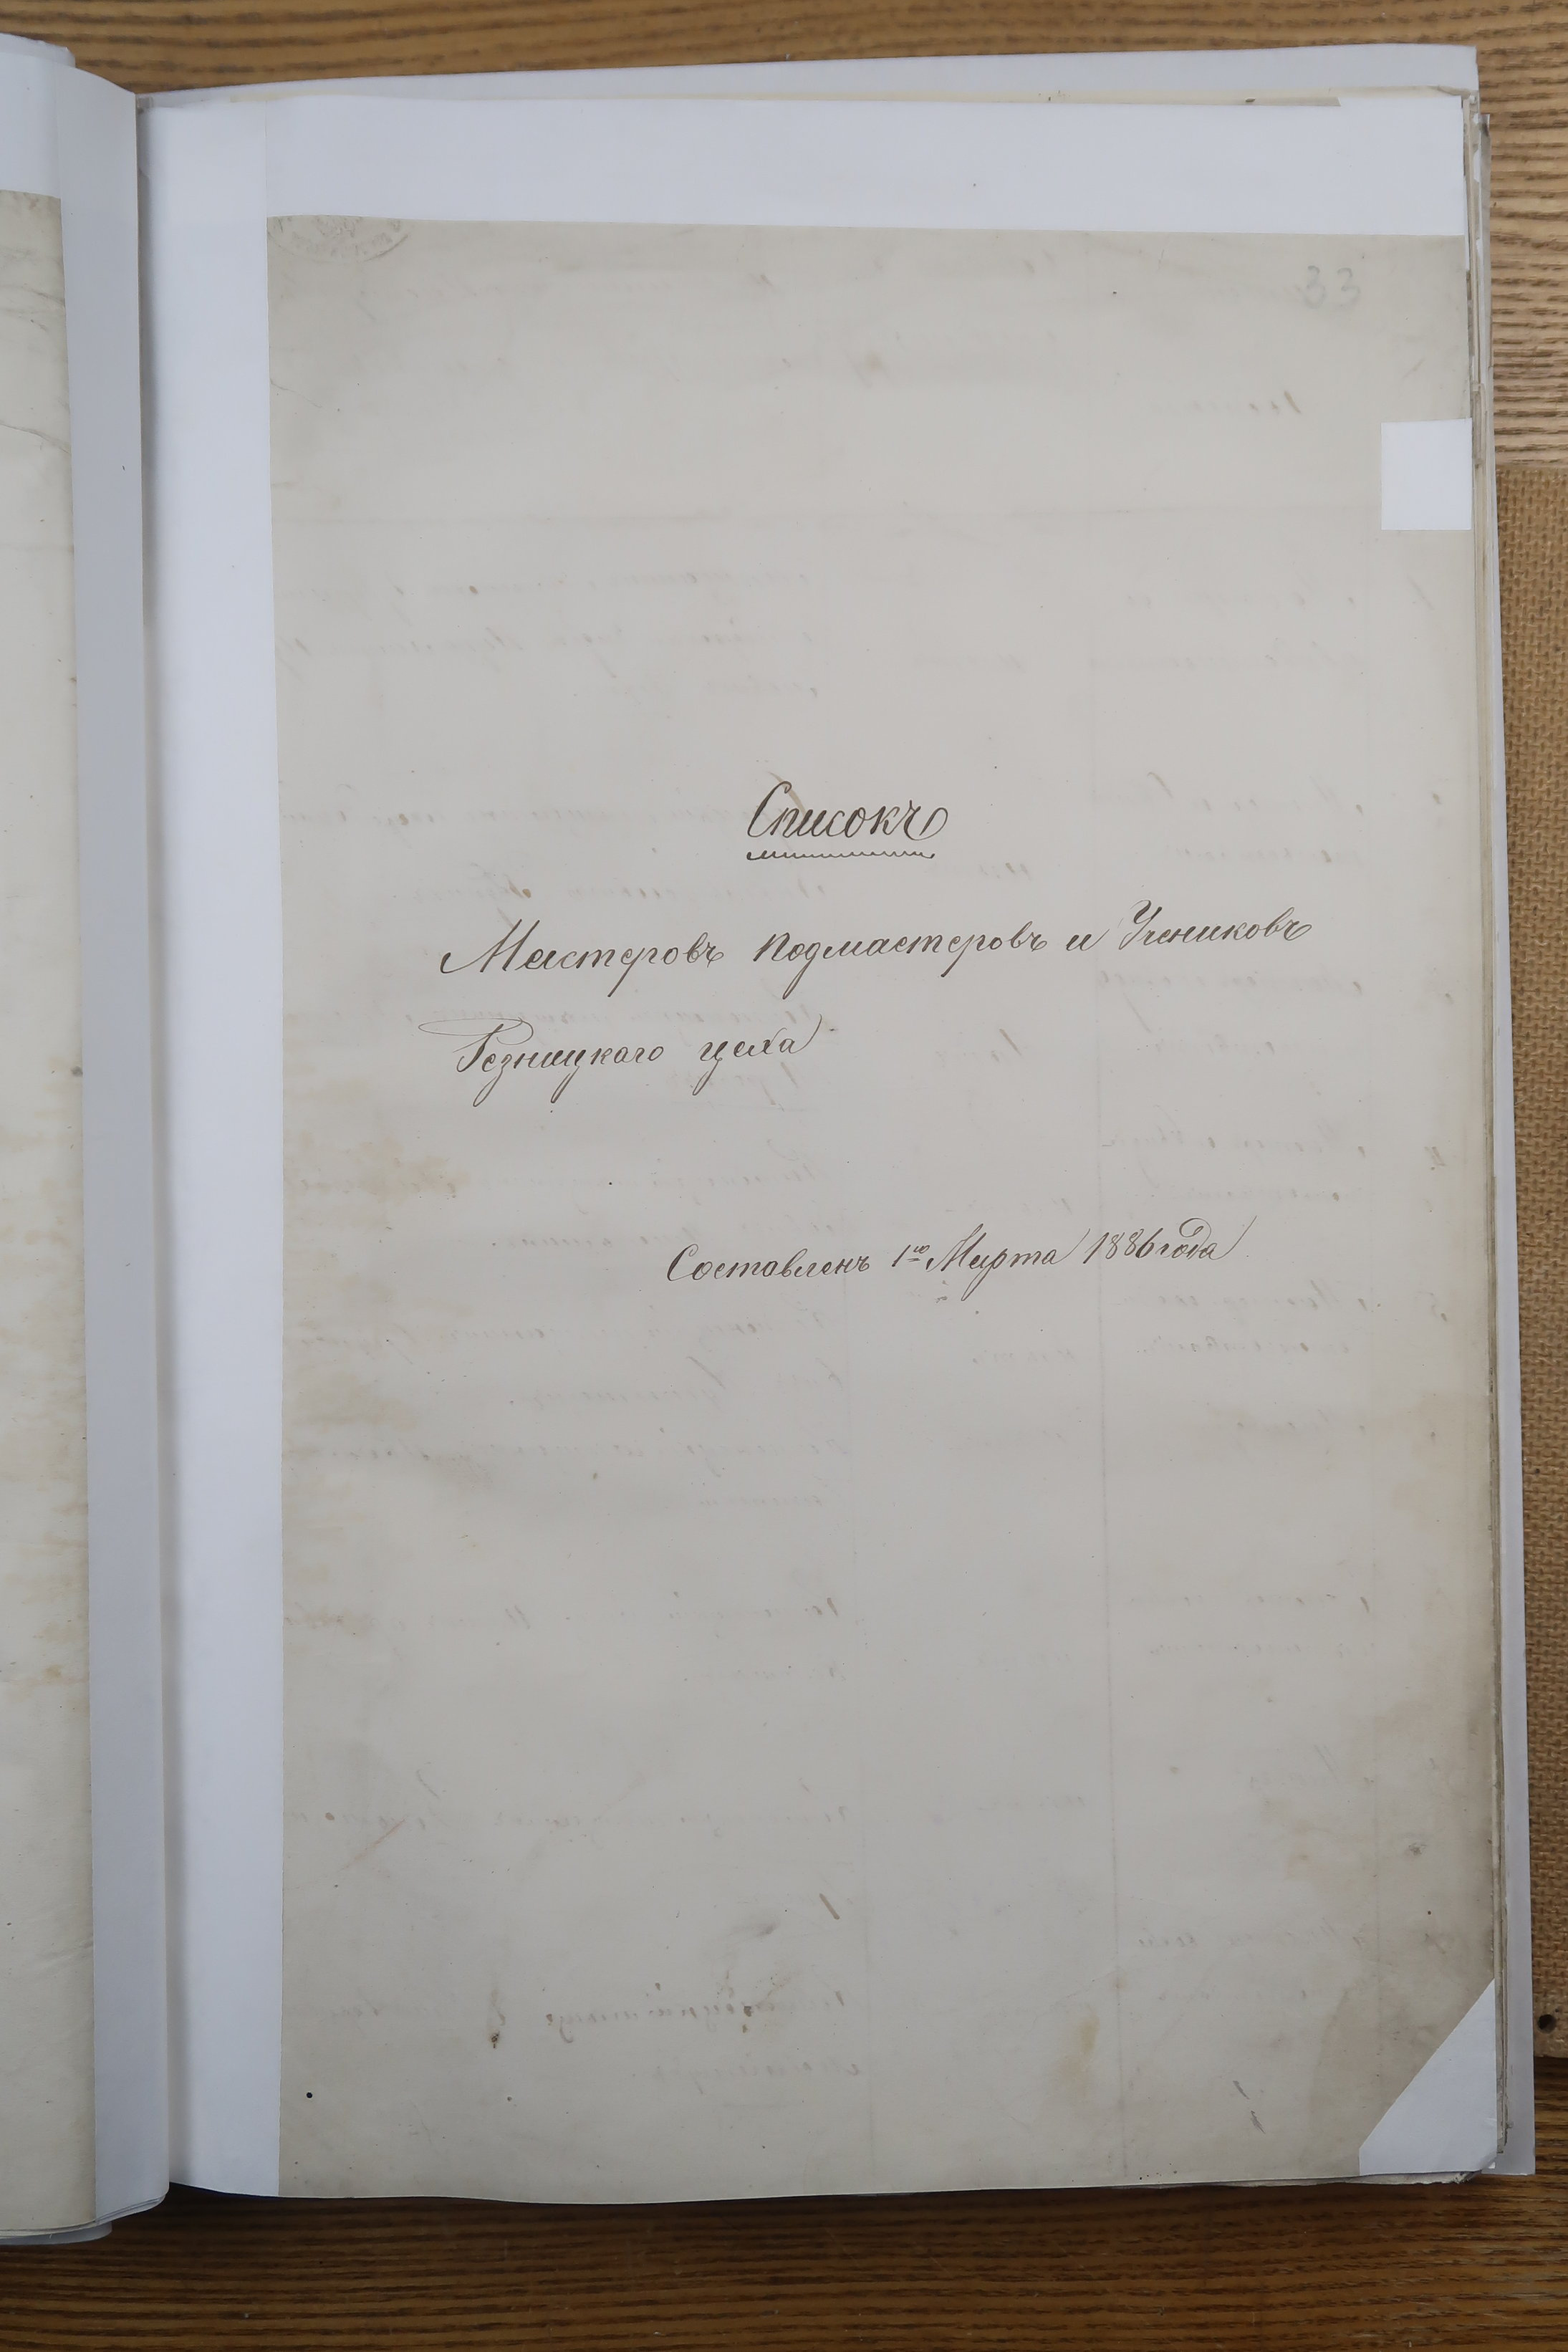 33
Списокъ
Мастеровъ подмастеровъ и Учениковъ
Резницкаго цеха
Составленъ 1го Марта 1886 года